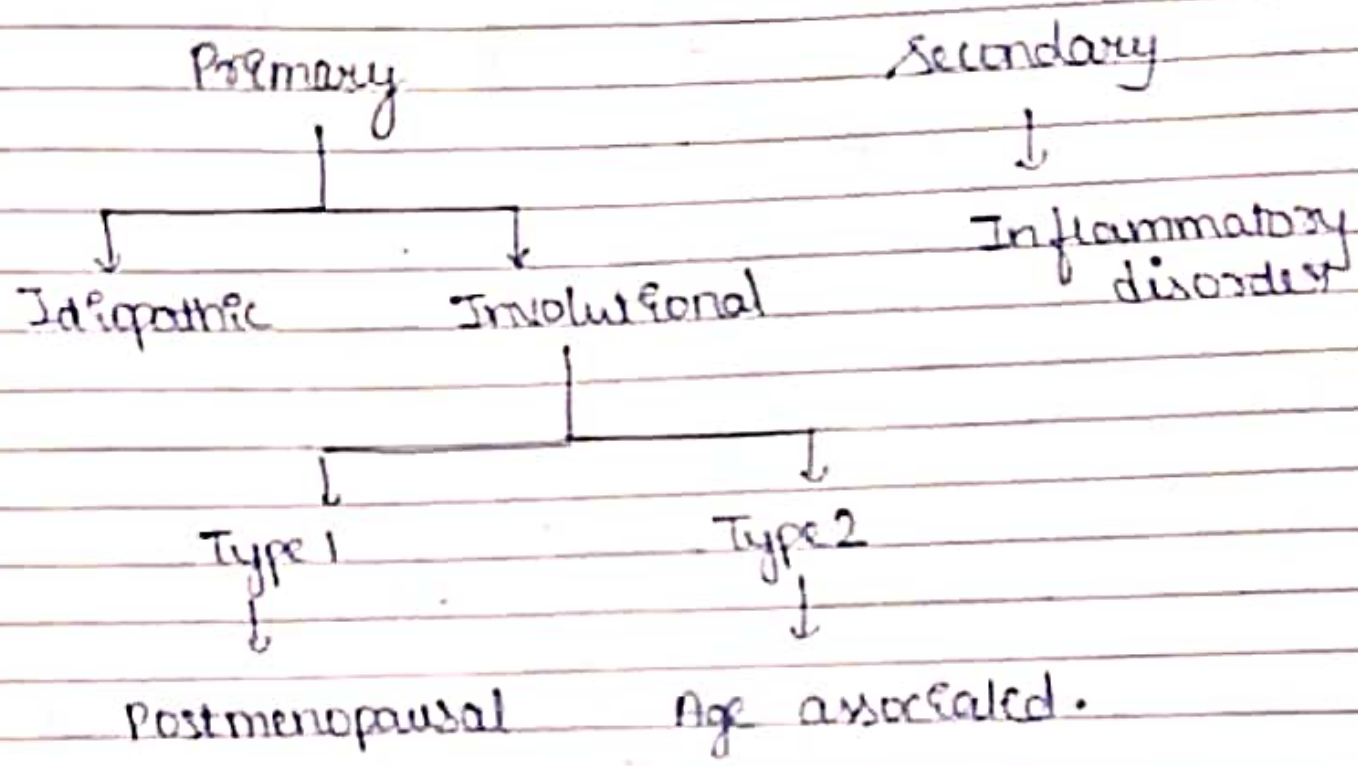 Primary Secondary
Inflammatory
disorder
Idiopathic Involutional
Type 1 Type 2
Postmenopausal Age associated.